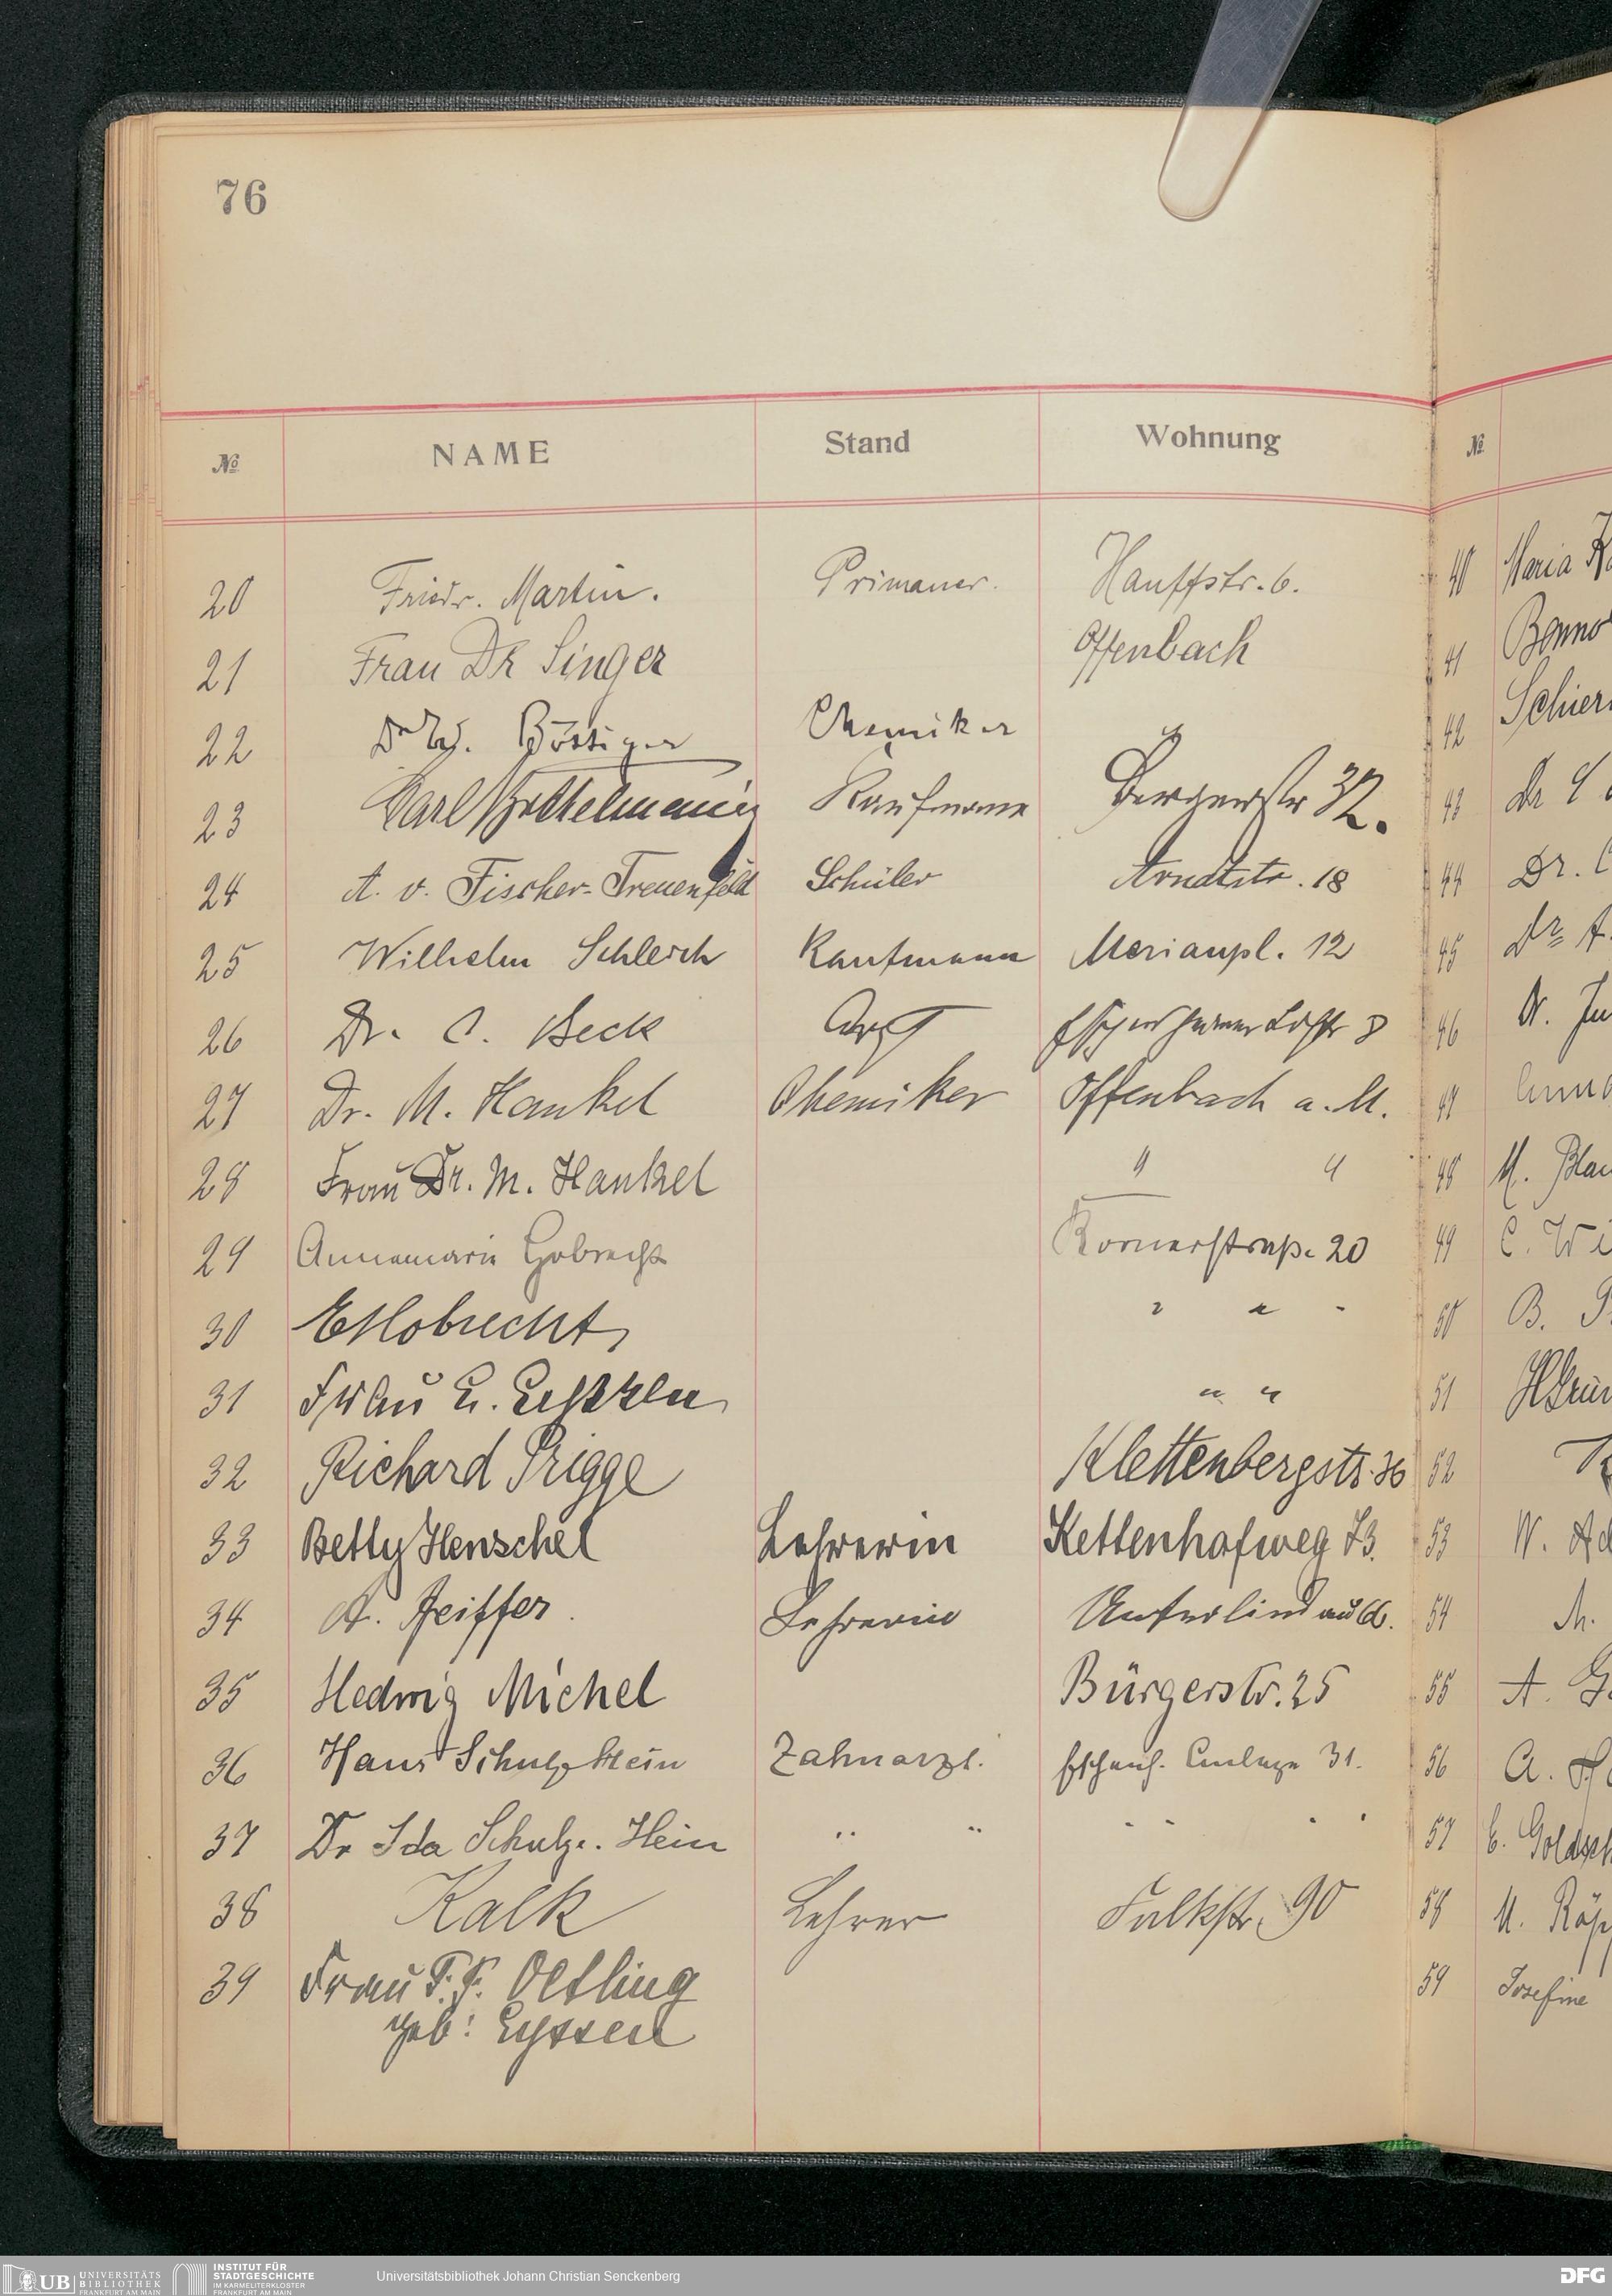 76
№ NAME Stand Wohnung
20 Friedr. Martin. Primaner. Hauffstr. 6.
21 Frau Dr Singer Offenbach
22 Dr Böttiger Chemiker
23 Carl Kaufmann Bergerstr 32.
24 A. v. Fischer-Treuenfeld Schüler Arndtstr. 18
25 Wilhelm Schlerch Kaufmann Merianpl. 12
26 Dr. C. Beck Arzt Eschersheimer Ldstr 8
27 Dr. M. Hankel Chemiker Offenbach a. M.
28 Frau Dr. M. Hankel " "
29 Annemarie Hobrecht Kornerstraße 20
30 E Hobrecht " " "
31 Frau E. " "
32 Richard Prigge Klettenbergstr. 36
33 Betty Henschel Lehrerin Kettenhofweg 73.
34 A. Pfeiffer. Lehrerin Unterlindau 66.
35 Hedwig Michel Bürgerstr. 25
36 Hans Schulze Hein Zahnarzt. Eschenh. Anlage 31.
37 Dr Ida Schulze. Hein " " " "
38 Kalk Lehrer Falkstr. 90
39 Frau F. Oelling
geb: Eyssen
№
40 Maria
41 Benno
42
43 Dr
44 Dr. C
45 Dr A.
46 Dr. Ju
47
48 M. Blau
49 C. Wi
50 B.
51
52
53 W. Ad
54 M.
55 A. G
56 A.
57 E. Goldsch
58 M.
59 Josefine
UB UNIVERSITÄTS
BIBLIOTHEK
FRANKFURT AM MAIN
INSTITUT FÜR
STADTGESCHICHTE
IM KARMELITERKLOSTER
FRANKFURT AM MAIN
Universitätsbibliothek Johann Christian Senckenberg
DFG